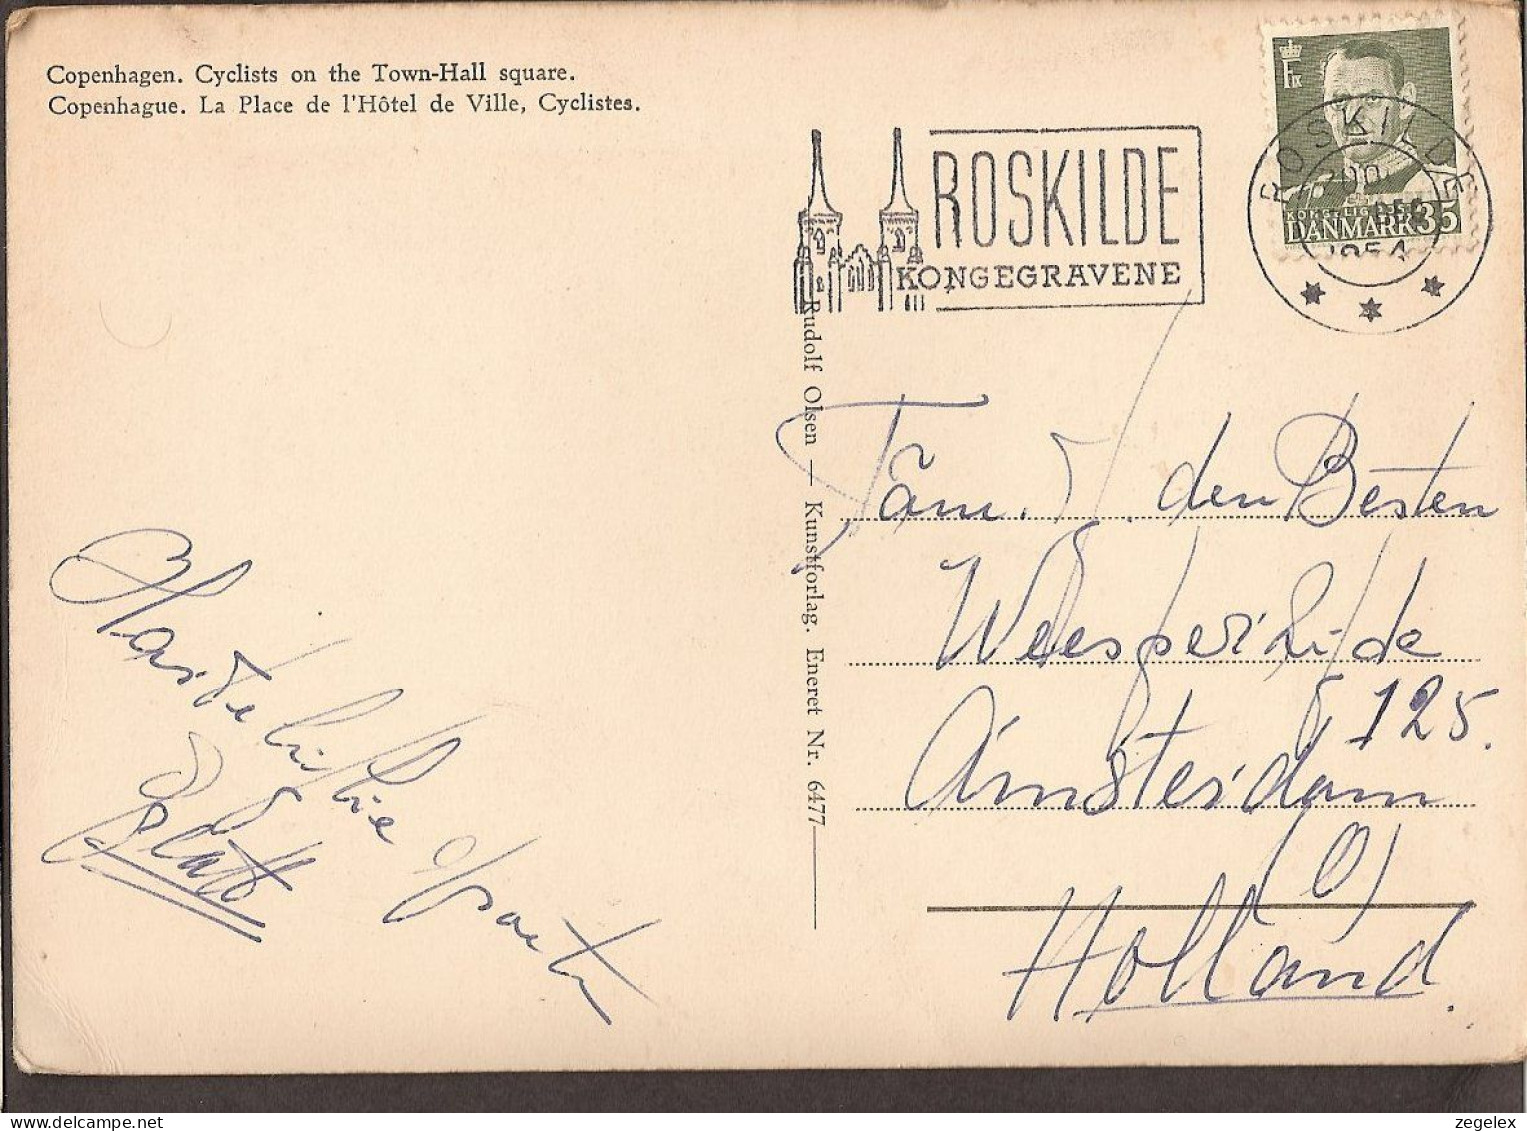 Copenhagen. Cyclists on the Town-Hall square.
Copenhague. La Place de l'Hôtel de Ville, Cyclistes.
ROSKILDE
KONGEGRAVENE
ROSKILDE
1954
DANMARK 35
Rudolf Olsen — Kunstforlag. Eneret Nr. 6477
Fam. V. den Besten
Weesperzijde
125.
Amsterdam
(O)
Holland.
Hartelijke groeten
zegelex